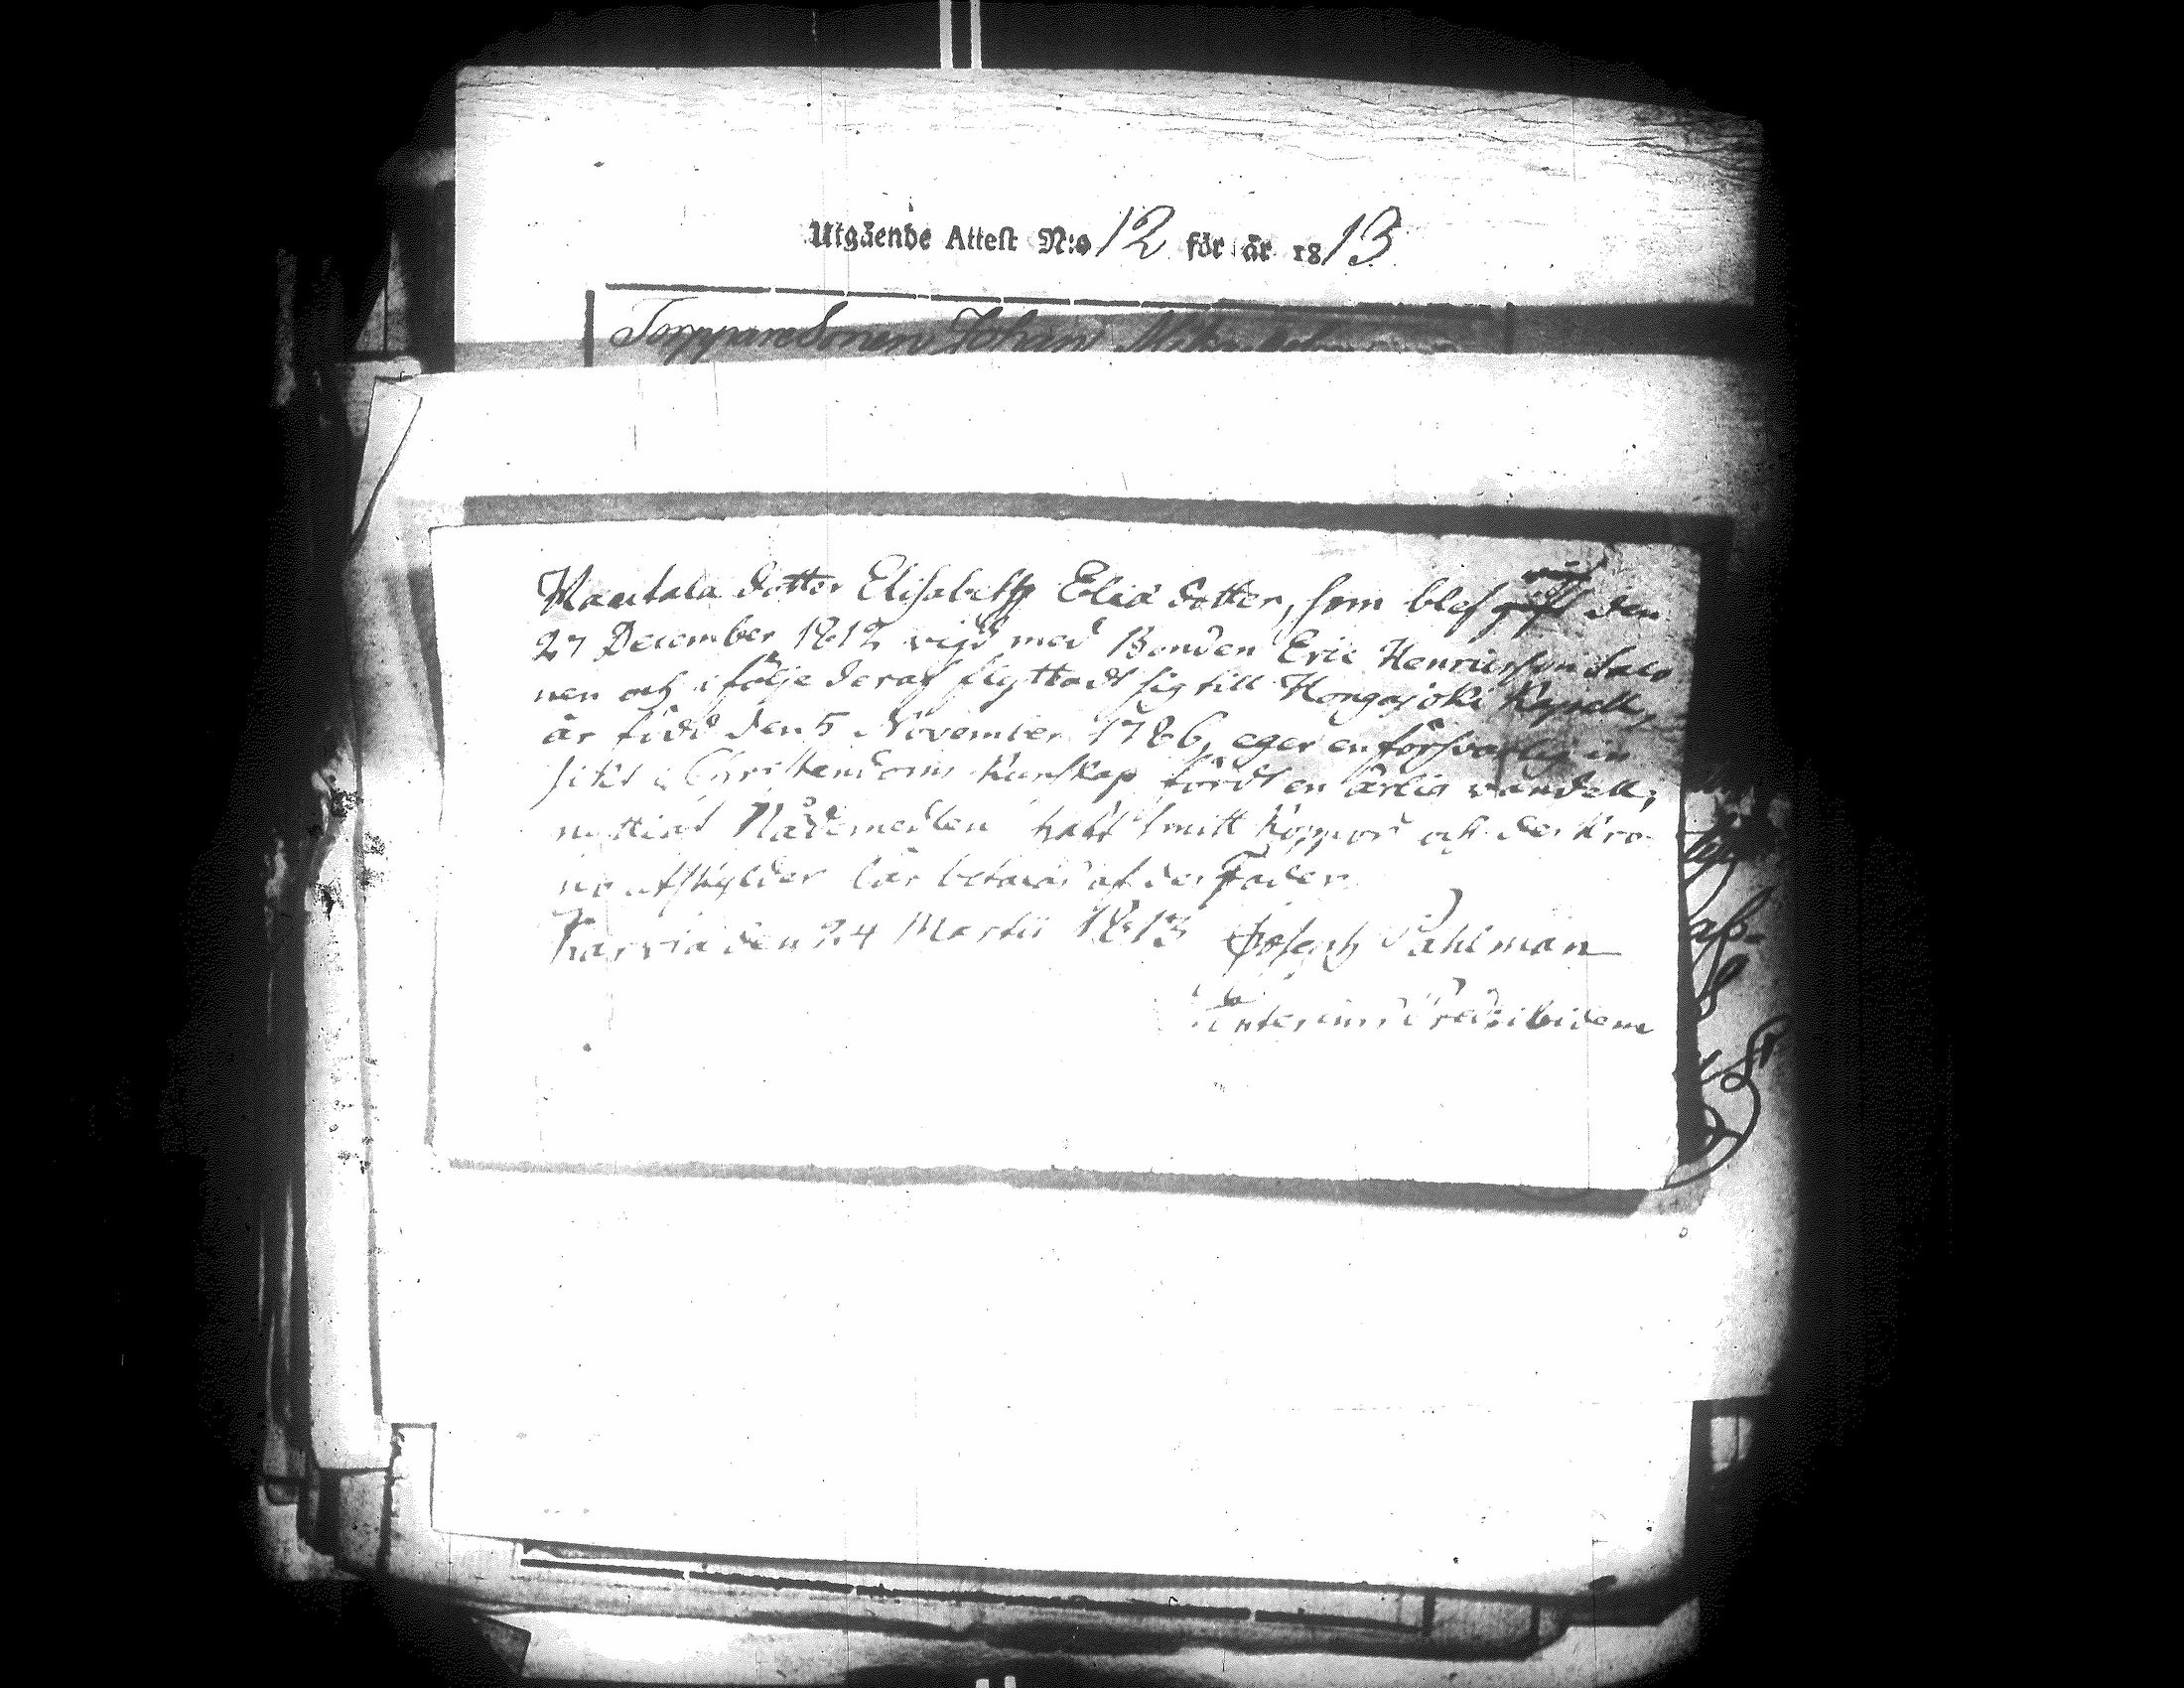 Utgående Attest N:o 12 för år 1813
Torpparesonen Johan
Elisabeth Eliä dotter, som blef den
27 December 1812 vigd med Bonden Eric Henricsson
nen och i följe deraf flyttadt sig till Hongajoki Kapell,
är född den 5 November 1786, eger en försvarlig in
sikt i Christendoms Kunskap fördt en ärlig vandell;
nyttiat Nådemedlen haft smitt Koppor och des Kro-
no utskylder lär betalas af des Fader
Karvia den 24 Martii 1813 Joseph Pahlman